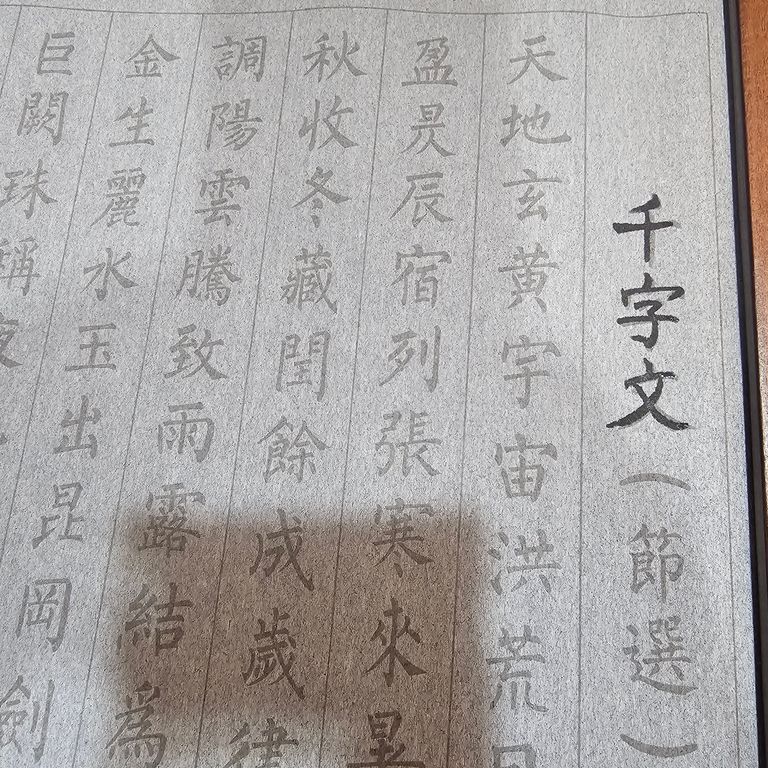 千字文（節選）
天地玄黄宇宙洪荒日
盈昃辰宿列張寒來暑
秋收冬藏閏餘成歲律
調陽雲騰致雨露結爲
金生麗水玉出昆岡劍
巨闕珠稱夜